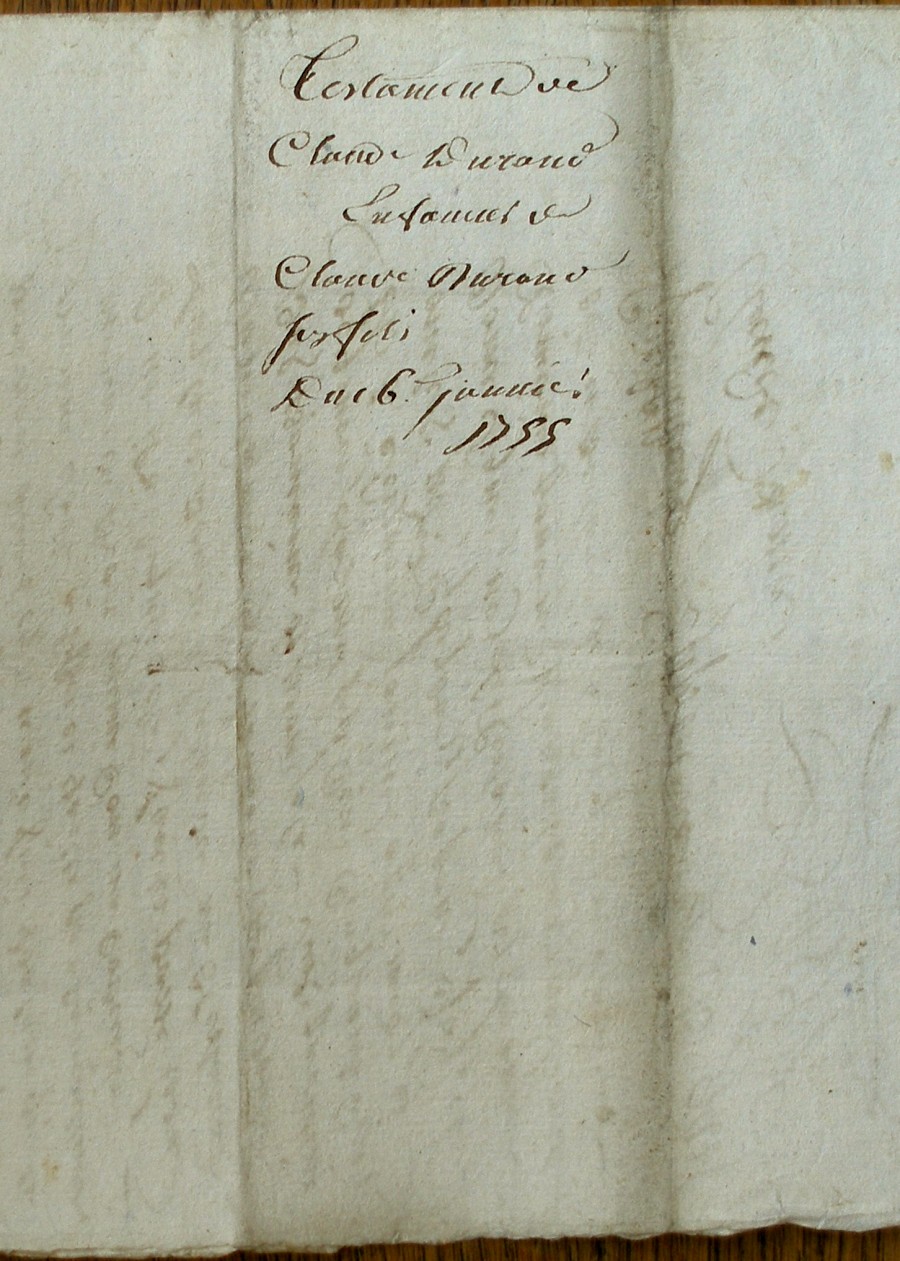 Testament de
Claude Durand
En faveur de
Claude Durand
son fils
Du 16 Janvier
1755